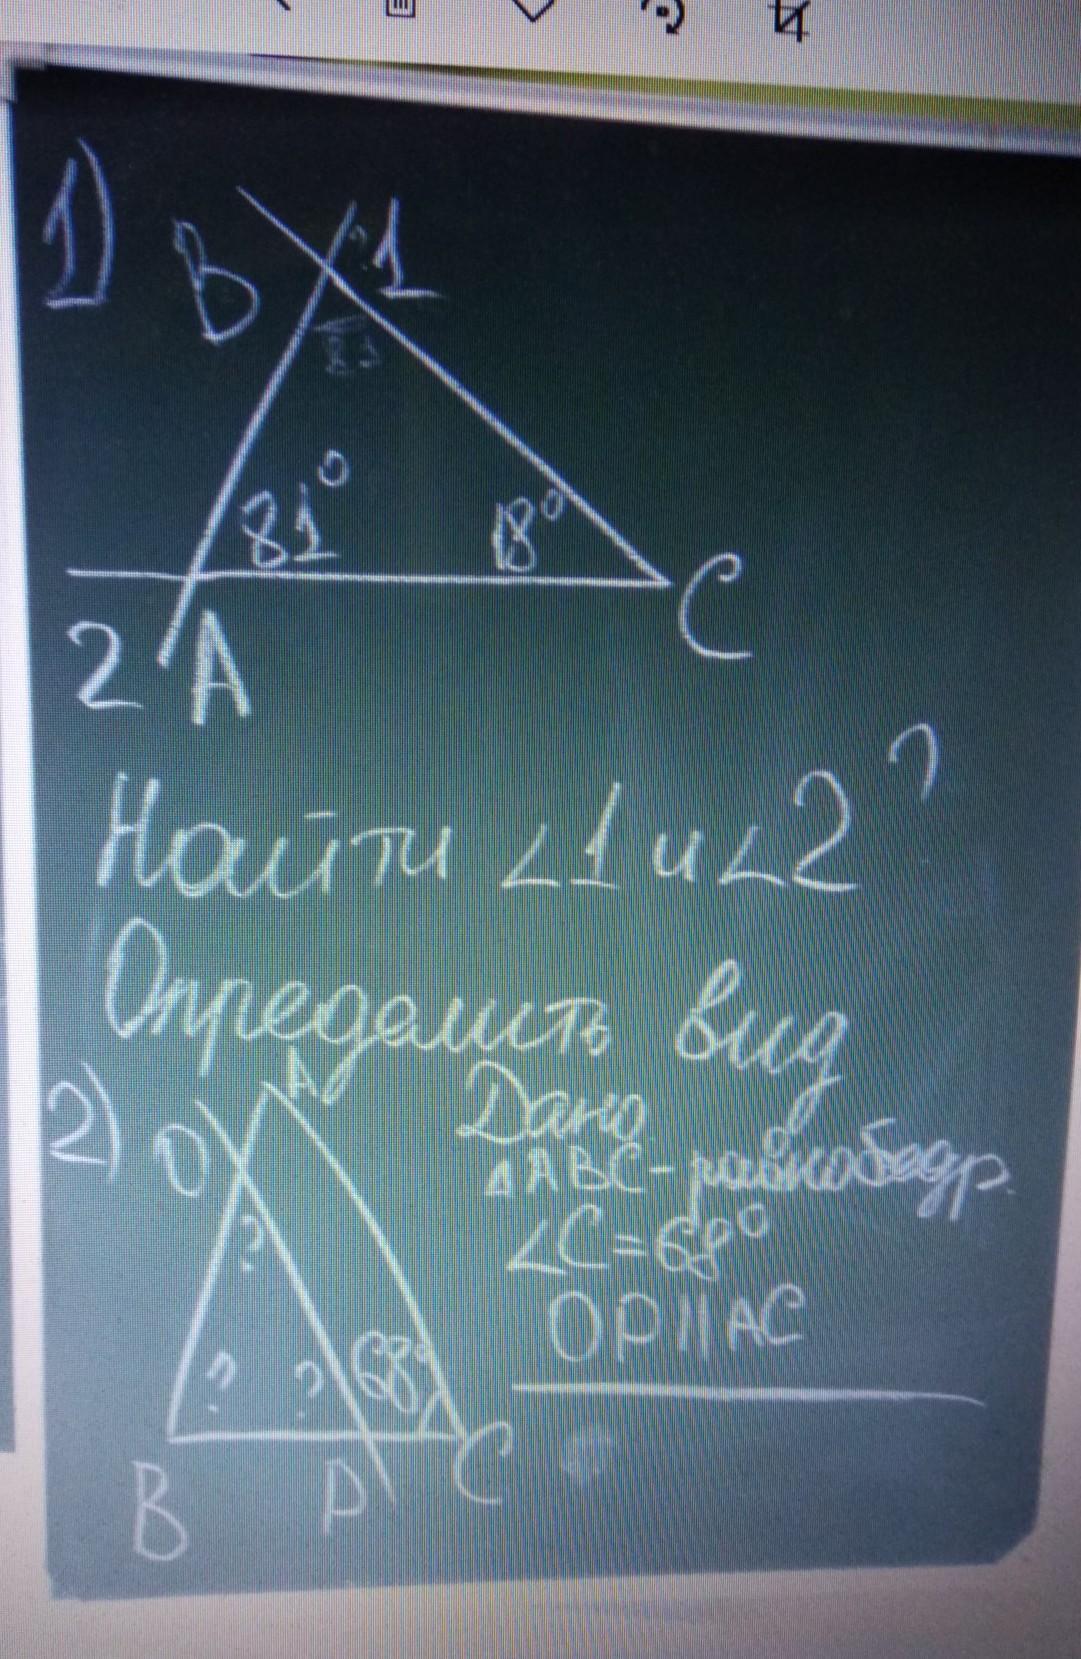 1)
B
?1
81
81°
18°
C
2
A
Найти ∠1 и ∠2 ?
Определить вид
2)
A
O
Дано
△ABC - равнобедр.
∠C = 68°
OP || AC
?
?
?
68°
B
P
C